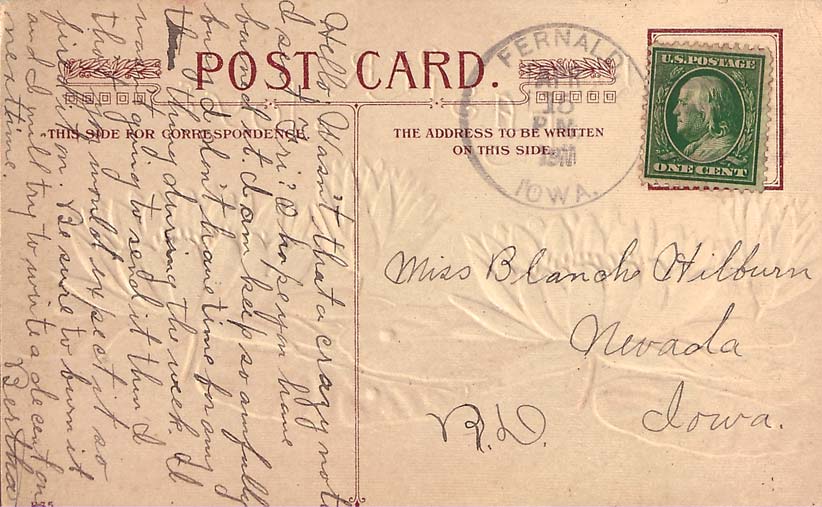 POST CARD.
THIS SIDE FOR CORRESPONDENCE.
THE ADDRESS TO BE WRITTEN
ON THIS SIDE.
FERNALD
18
P.M.
1911
IOWA.
U.S. POSTAGE
ONE CENT
Miss Blanche Hilburn
Nevada
Iowa.
R.D.
Hello Wasn't that a crazy note
I sent "Fri" I hope you have
burned it. I am keep so awfully
busy I don't have time for any
thing during the week. I
wasn't going to send it then I
thot you would expect it so
fixed it on. Be sure to burn it
and I will try to write a decent one
next time.
Bertha